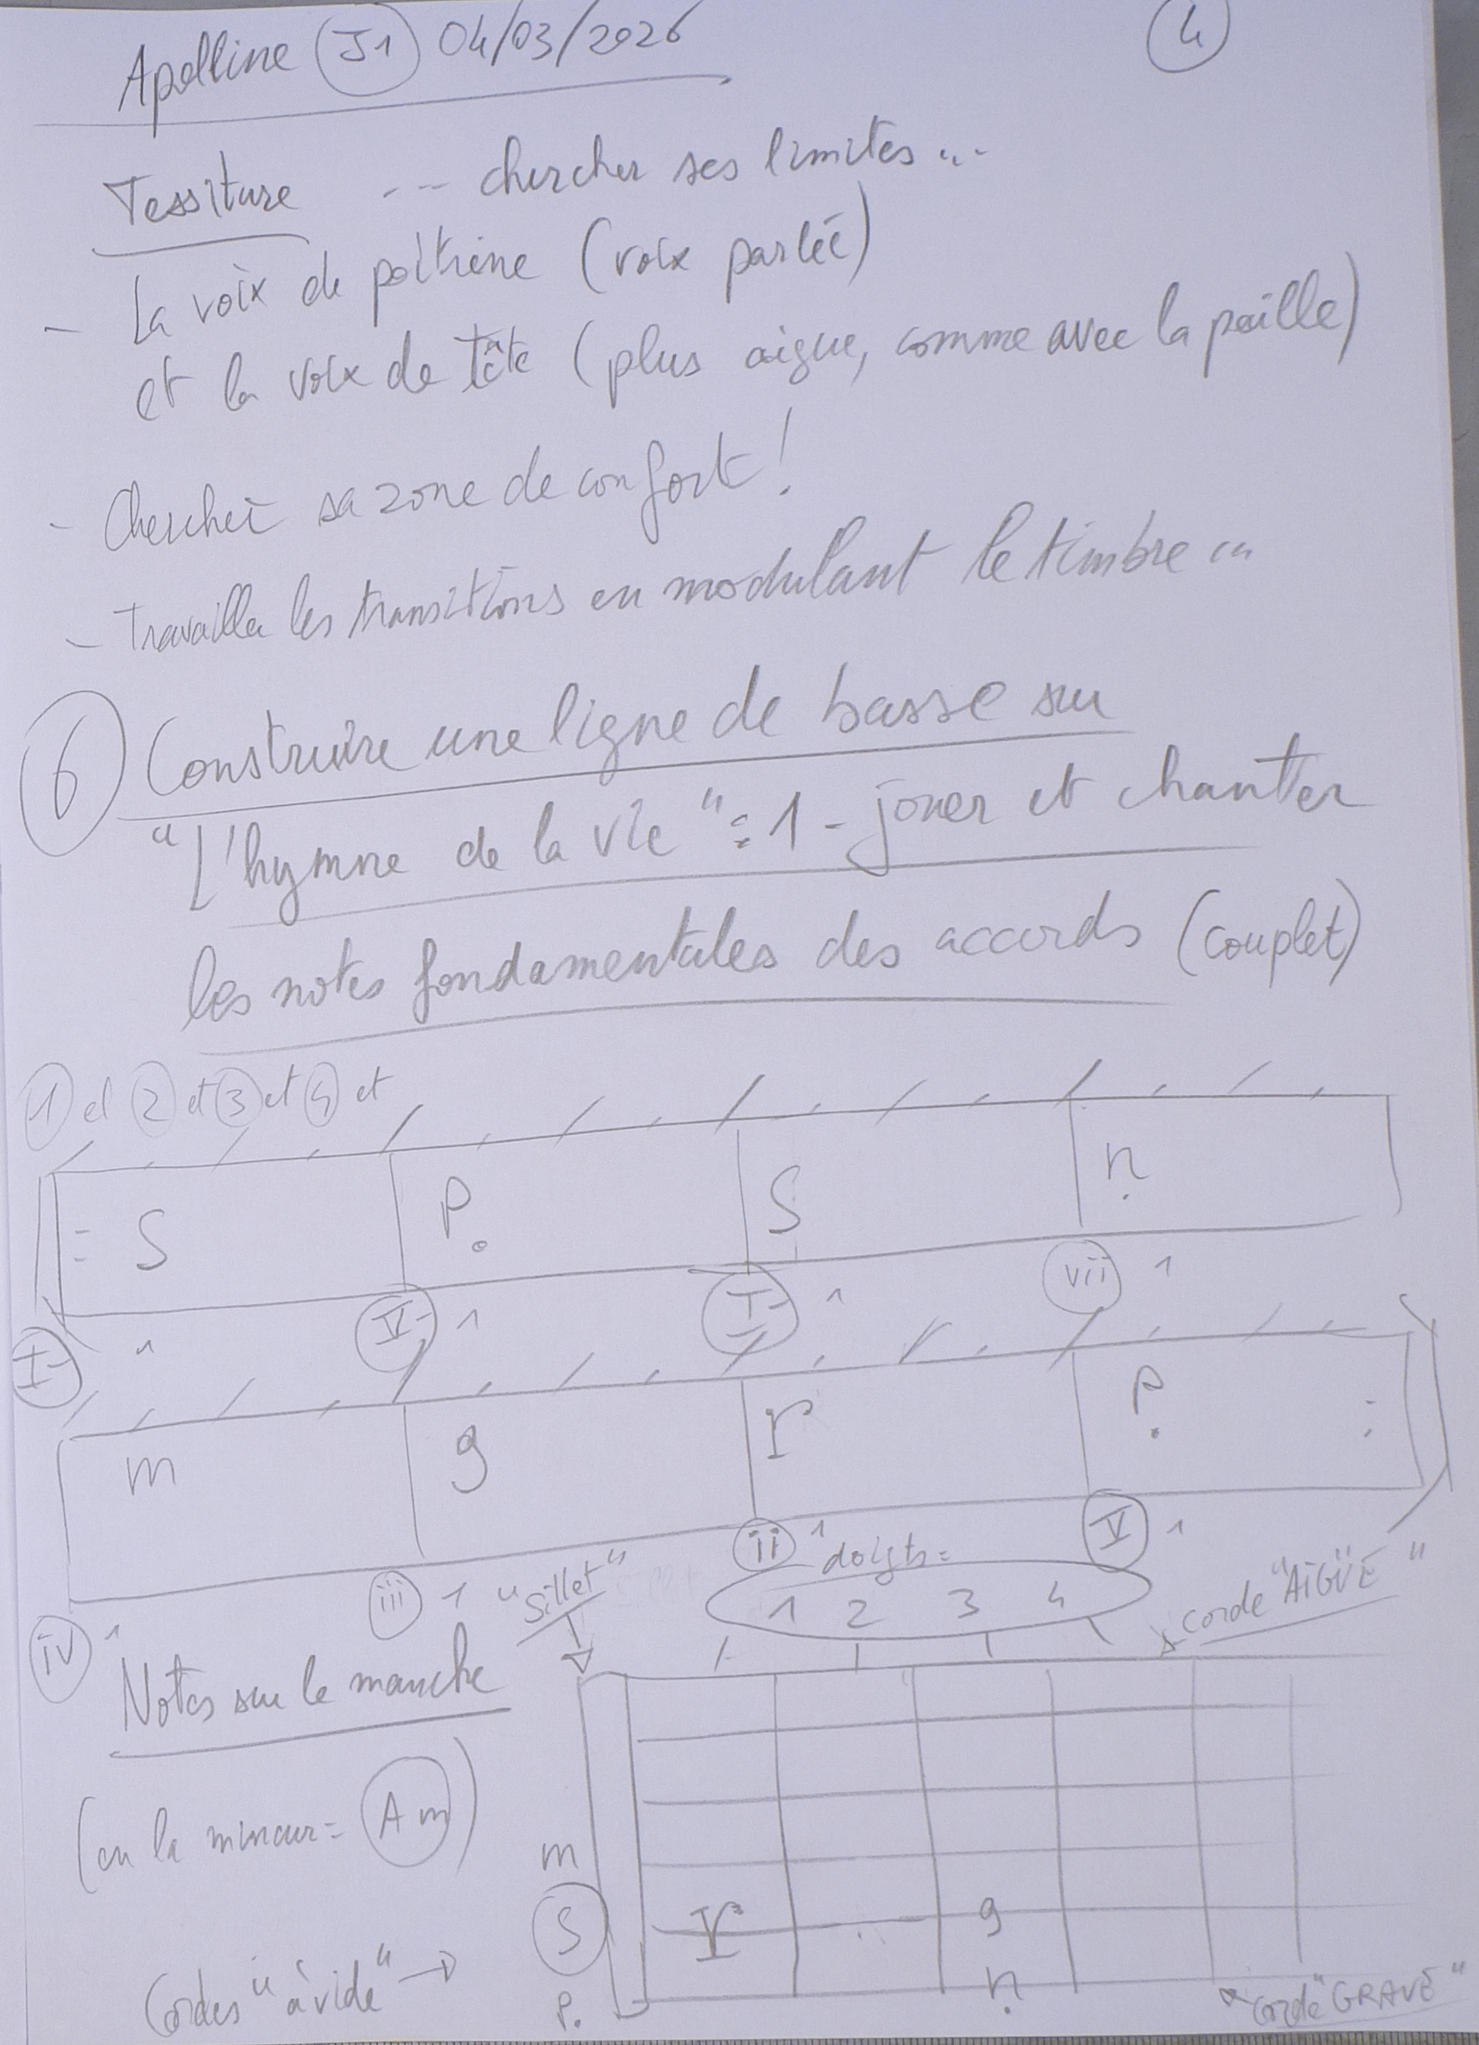 Apolline J1 04/03/2026
4
Tessiture --- chercher ses limites...
- La voix de poitrine (voix parlée)
et la voix de tête (plus aigue, comme avec la paille)
- Chercher sa zone de confort!
- Travailler les transitions en modulant le timbre...
6 Construire une ligne de basse sur
"L'hymne de la vie" : 1 - jouer et chanter
les notes fondamentales des accords (couplet)
1 et 2 et 3 et 4 et
: S P. S n.
I 1 V 1 I 1 vii 1
m g r P. :
iv 1 iii 1 ii 1 V 1
"Sillet"
doigts =
1 2 3 4
corde "AIGÜE"
Notes sur le manche
(en la mineur = Am)
m
S r g
Cordes "à vide" → P. n.
corde "GRAVE"